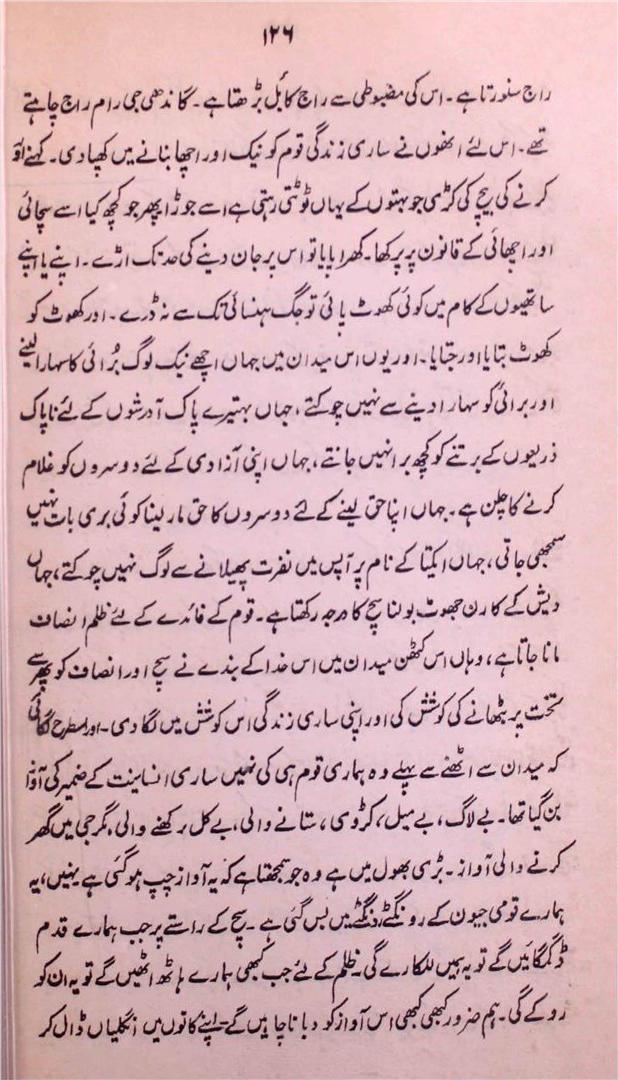 ۱۲۶
راج سنورتا ہے۔ اس کی مضبوطی سے راج کا بَل بڑھتا ہے۔ گاندھی جی رام راج چاہتے
تھے۔ اس لئے انھوں نے ساری زندگی قوم کو نیک اور اچھا بنانے میں کھپا دی۔ کہنے اور
کرنے کی بیچ کی کڑی جو بہتوں کے یہاں ٹوٹتی رہتی ہے اسے جوڑا پھر جو کچھ کیا اسے سچائی
اور اچھائی کے قانون پر پرکھا۔ کھرا پایا تو اس پر جان دینے کی حد تک اڑے۔ اپنے یا اپنے
ساتھیوں کے کام میں کوئی کھوٹ پائی تو جگ ہنسائی تک سے نہ ڈرے۔ اور کھوٹ کو
کھوٹ بتایا اور جتایا۔ اور یوں اس میدان میں جہاں اچھے نیک لوگ بُرائی کا سہارا لینے
اور برائی کو سہارا دینے سے نہیں چوکتے، جہاں بہتیرے پاک آدرشوں کے لئے ناپاک
ذریعوں کے برتنے کو کچھ برا نہیں جانتے، جہاں اپنی آزادی کے لئے دوسروں کو غلام
کرنے کا چلن ہے۔ جہاں اپنا حق لینے کے لئے دوسروں کا حق مار لینا کوئی بری بات نہیں
سمجھی جاتی، جہاں ایکتا کے نام پر آپس میں نفرت پھیلانے سے لوگ نہیں چوکتے، جہاں
دیش کے کارن جھوٹ بولنا سچ کا درجہ رکھتا ہے۔ قوم کے فائدے کے لئے ظلم انصاف
مانا جاتا ہے، وہاں اس کٹھن میدان میں اس خدا کے بندے نے سچ اور انصاف کو پھر سے
تخت پر بٹھانے کی کوشش کی اور اپنی ساری زندگی اس کوشش میں لگا دی۔ اور اسطرح لگائی
کہ میدان سے اٹھنے سے پہلے وہ ہماری قوم ہی کی نہیں ساری انسانیت کے ضمیر کی آواز
بن گیا تھا۔ بے لاگ، بے میل، کڑوی، ستانے والی، بے کل رکھنے والی، مگر جی میں گھر
کرنے والی آواز۔ بڑی بھول میں ہے وہ جو سمجھتا ہے کہ یہ آواز چپ ہو گئی ہے نہیں، یہ
ہمارے قومی جیون کے رونگٹے رونگٹے میں بس گئی ہے۔ سچ کے راستے پر جب ہمارے قدم
ڈگمگائیں گے تو یہ ہمیں للکارے گی۔ ظلم کے لئے جب کبھی ہمارے ہاتھ اٹھیں گے تو یہ ان کو
روکے گی۔ ہم ضرور کبھی کبھی اس آواز کو دبانا چاہیں گے۔ اپنے کانوں میں انگلیاں ڈال کر